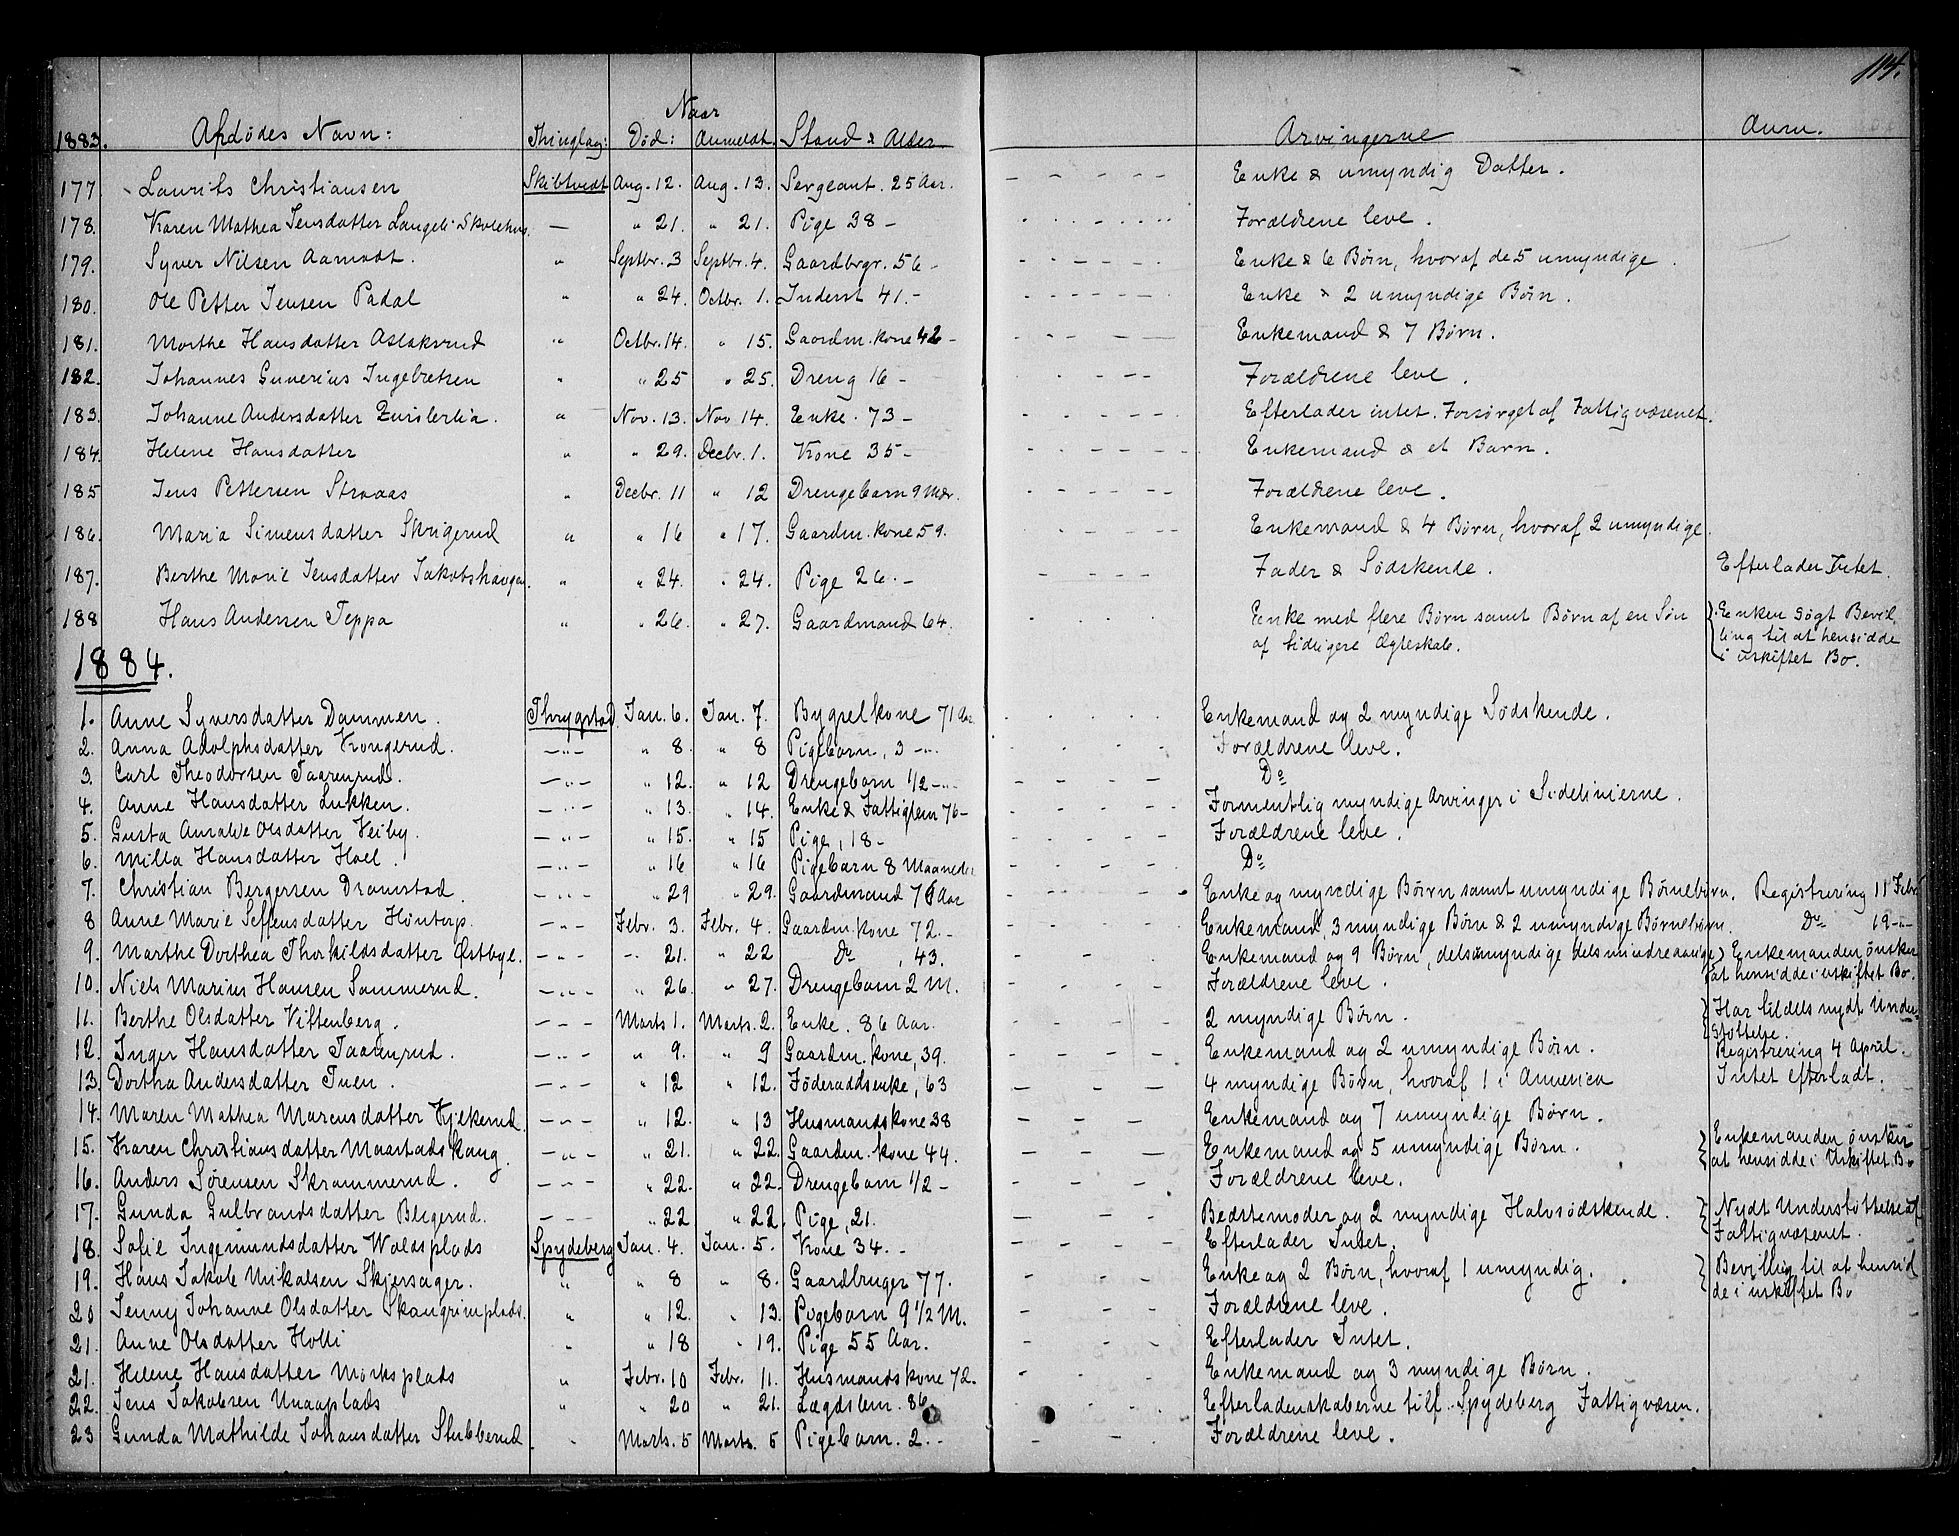 114.
Naar
1883. Afdødes Navn: Thinglag: Død: Anmeldt. Stand & Alder Arvingerne Anm.
177. Laurits Christiansen Skibtvedt Aug. 12. Aug. 13. Sergeant. 25 Aar. Enke & umyndig Datter.
178. Karen Mathea Jensdatter Langeli Skolehus. — " 21. " 21. Pige 38 - Forældrene leve.
179. Syver Nilsen Aamodt. " Septbr. 3 Septbr. 4. Gaardbrgr. 56 - Enke & 6 Børn, hvoraf de 5 umyndige.
180. Ole Petter Jensen Padal " " 24. Octbr. 1. Inderst 41. - Enke & 2 umyndige Børn.
181. Marthe Hansdatter Aslakrud " Octbr. 14. " 15. Gaardm. kone 42 - Enkemand & 7 Børn.
182. Johannes Gunerius Ingebretsen " " 25 " 25. Dreng 16 - Forældrene leve.
183. Johanne Andersdatter " Nov. 13. Nov 14. Enke. 73 - Efterlader intet. Forsørget af Fattigvæsenet.
184. Helene Hansdatter " " 29. Decbr. 1. Kone 35 - Enkemand & et Barn.
185 Jens Pettersen Straaas " Decbr. 11 " 12 Drengebarn 9 Mdr. Forældrene leve.
186. Maria Simensdatter Skrigerud " " 16 " 17. Gaardm. kone 59. Enkemand & 4 Børn, hvoraf 2 umyndige.
187. Berthe Marie Jensdatter Jakobshaugen. " " 24. " 24. Pige 26. - Fader & Sødskende. Efterlader Intet.
188 Hans Andersen Teppa " " 26. " 27. Gaardmand 64. Enke med flere Børn samt Børn af en Søn Enken søgt Bevil
af tidligere Ægteskab. ling til at hensidde
i uskiftet Bo.
1884.
1. Anne Syversdatter Dammen. Thrygstad Jan. 6. Jan. 7. Bygselkone 71 Aar Enkemand og 2 myndige Sødskende.
2. Anna Adolphsdatter Kongerud. —"— " 8. " 8 Pigebarn, 3 —"— Forældrene leve.
3. Carl Theodorsen Taarenrud. —"— " 12. " 12 Drengebarn 1/2 —"— Do
4. Anne Hansdatter Lukken. —"— " 13. " 14. Enke & Fattiglem 76 - Formentlig myndige Arvinger i Sidelinierne.
5. Gusta Amalie Olsdatter Veiby. —"— " 15. " 15 Pige, 18 - Forældrene leve.
6. Milla Hansdatter Hoel. —"— " 16 " 16 Pigebarn 8 Maaneder Do
7. Christian Bergersen Dramstad —"— " 29 " 29. Gaardmand 76 Aar Enke og myndige Børn samt umyndige Børnebørn. Registrering 11 Febr
8 Anne Marie Seffensdatter Hontorp. —"— Febr. 3. Febr. 4. Gaardm. kone 72. - Enkemand, 3 myndige Børn & 2 umyndige Børnebørn. Do 19 —"—
9. Marthe Dorthea Thorkildsdatter Østbye. —"— —. 21. " 22 Do, 43. Enkemand og 9 Børn, dels umyndige dels mindreaarige Enkemanden ønsker
at hensidde i uskiftet Bo.
10. Niels Marius Hansen Sommerud. —"— " 26 " 27. Drengebarn 2 M. Forældrene leve.
11. Berthe Olsdatter Viftenberg. —"— Marts 1. Marts. 2. Enke. 86 Aar. 2 myndige Børn. Har tildels nydt Under-
støttelse.
12. Inger Hansdatter Taarenrud. —"— " 9. " 9 Gaardm. kone, 39. Enkemand og 2 umyndige Børn. Registrering 4 April.
13. Dortha Andersdatter Tuen. —"— " 12 " 12. Føderaadsenke, 63 4 myndige Børn, hvoraf 1 i America Intet efterladt.
14. Maren Mathea Marcusdatter Kjikerud. —"— " 12. " 13 Husmandskone 38 Enkemand og 7 umyndige Børn.
15. Karen Christiansdatter Maastadskaug. —"— " 21. " 22. Gaardm. kone 44. Enkemand og 5 umyndige Børn. Enkemanden ønsker
at hensidde i Uskiftet Bo
16. Anders Sørensen Skrammerud. —"— " 22. " 22. Drengebarn 1/2 - Forældrene leve.
17. Gunda Gulbrandsdatter Blegerud. —"— " 22 " 22. Pige, 21. Bedstemoder og 2 myndige Halvsødskende. Nydt Understøttelse af
Fattigvæsenet.
18. Sofie Ingemundsdatter Woldsplads Spydeberg Jan. 4. Jan. 5. Kone 34. - Efterlader Intet.
19. Hans Jakob Nikolsen Skjersager. " " 8 " 8. Gaardbruger 77. Enke og 2 Børn, hvoraf 1 umyndig. Bevilling til at hensid
de i uskiftet Bo
20 Jenny Johanne Olsdatter Skaugrimplads. " " 12. " 13. Pigebarn 9 1/2 M. Forældrene leve.
21. Anne Olsdatter Holli " " 18 " 19. Pige 55 Aar. Efterlader Intet.
21. Helene Hansdatter Mørksplads " Febr. 10 Febr. 11. Husmandskone 72. Enkemand og 3 myndige Børn.
22. Jens Jakobsen Unaaplads " " 20 " 21. Lægdslem. 86. Efterladenskaberne tilf. Spydeberg Fattigvæsen.
23 Gunda Mathilde Johansdatter Stubberud " Marts. 5 Marts. 5 Pigebarn. 2. - Forældrene leve.